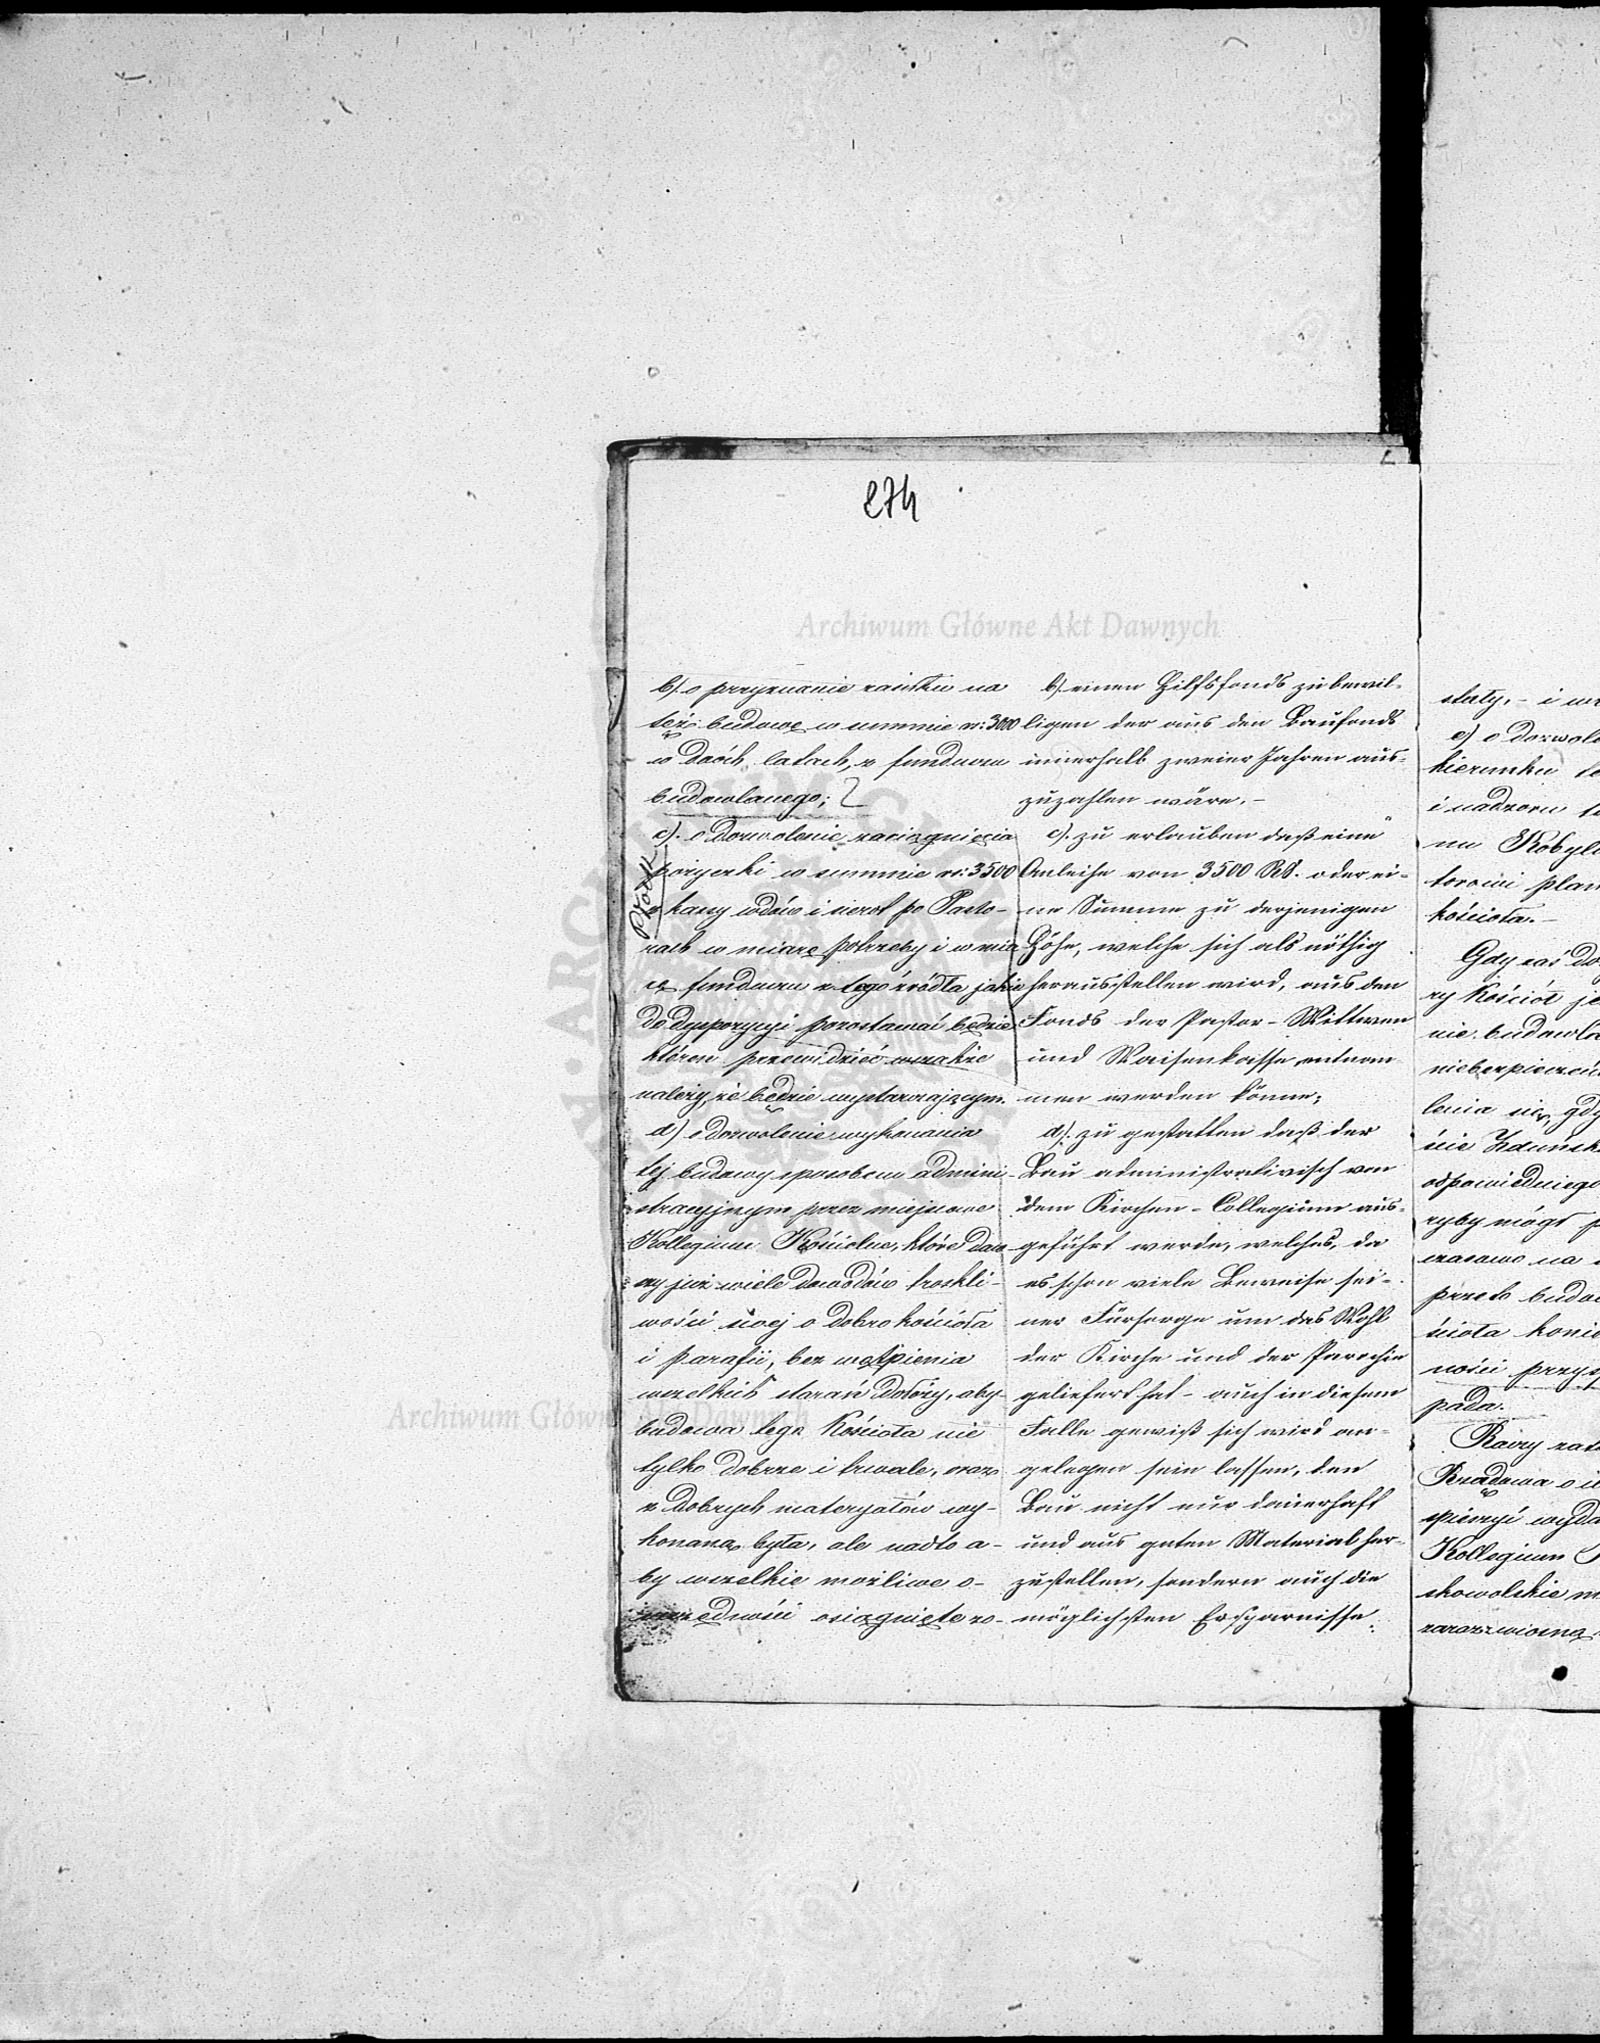 274
Archiwum Główne Akt Dawnych
b). o przyznanie zasiłku na
też budowę w summie rs: 3000
w dwóch latach, z funduszu
budowlanego;
c). o dozwolenie zaciągnięcia
pożyczki w summie rs: 3500
z kassy wdów i sierot po Pasto-
rach w miarę potrzeby i w mia
rę funduszu z tegó źródła jakie
do dyspozycyi pozostawać będzie
któren przewidzieć wszakże
należy, że będzie wystarczającym.
d) o dozwolenie wykonania
tej budowy sposobem admini-
stracyjnym przez miejscowe
Kollegium Kościelne, które daw-
szy już wiele dowodów troskli-
wości swej o dobro kościoła
i parafii, bez wątpienia
wszelkich starań dołoży, aby
budowa tego Kościoła nie
tylko dobrze i trwale, oraz
z dobrych materyałów wy-
konaną była, ale nadto a-
by wszelkie możliwe o-
szczędności osiągnięte zo-
b). einen Hilfsfonds zu bewil-
ligen der aus den Baufonds
innerhalb zweier Jahren aus-
zuzahlen wäre.-
c). zu erlauben daß eine
Anleihe von 3500 RS. oder ei-
ne Summe zu derjenigen
Höhe, welche sich als nöthig
herausstellen wird, aus den
Fonds der Pastor-Wittwen
und Waisenkasse entnom-
men werden könne;
d). zu gestatten daß der
Bau administrativisch von
dem Kirchen-Collegium aus-
geführt werde, welches, da
es schon viele Beweise sei-
ner Fürsorge um das Wohl
der Kirche und der Parochie
geliefert hat - auch in diesem
Falle gewiß sich wird an-
gelegen sein lassen, den
Bau nicht nur dauerhaft
und aus guten Material her-
zustellen, sondern auch die
möglichsten Ersparnisse
Archiwum Główne Akt Dawnych
staty,- i
e) o dozwole
kierunku
i nadzoru
nu Kobyl
torowi plan
kościoła.-
Gdy zaś do
ry Kościół je
nie budowla
niebezpieczeń
lenia się, gdy
ście Zduńsk
odpowiedniego
ryby mógł p
czasowo na
przeto budow
ścioła konie
ności przys
pada.
Raczy zat
Rządowa o
spieszyć wyda
Kollegium
skowolskie m